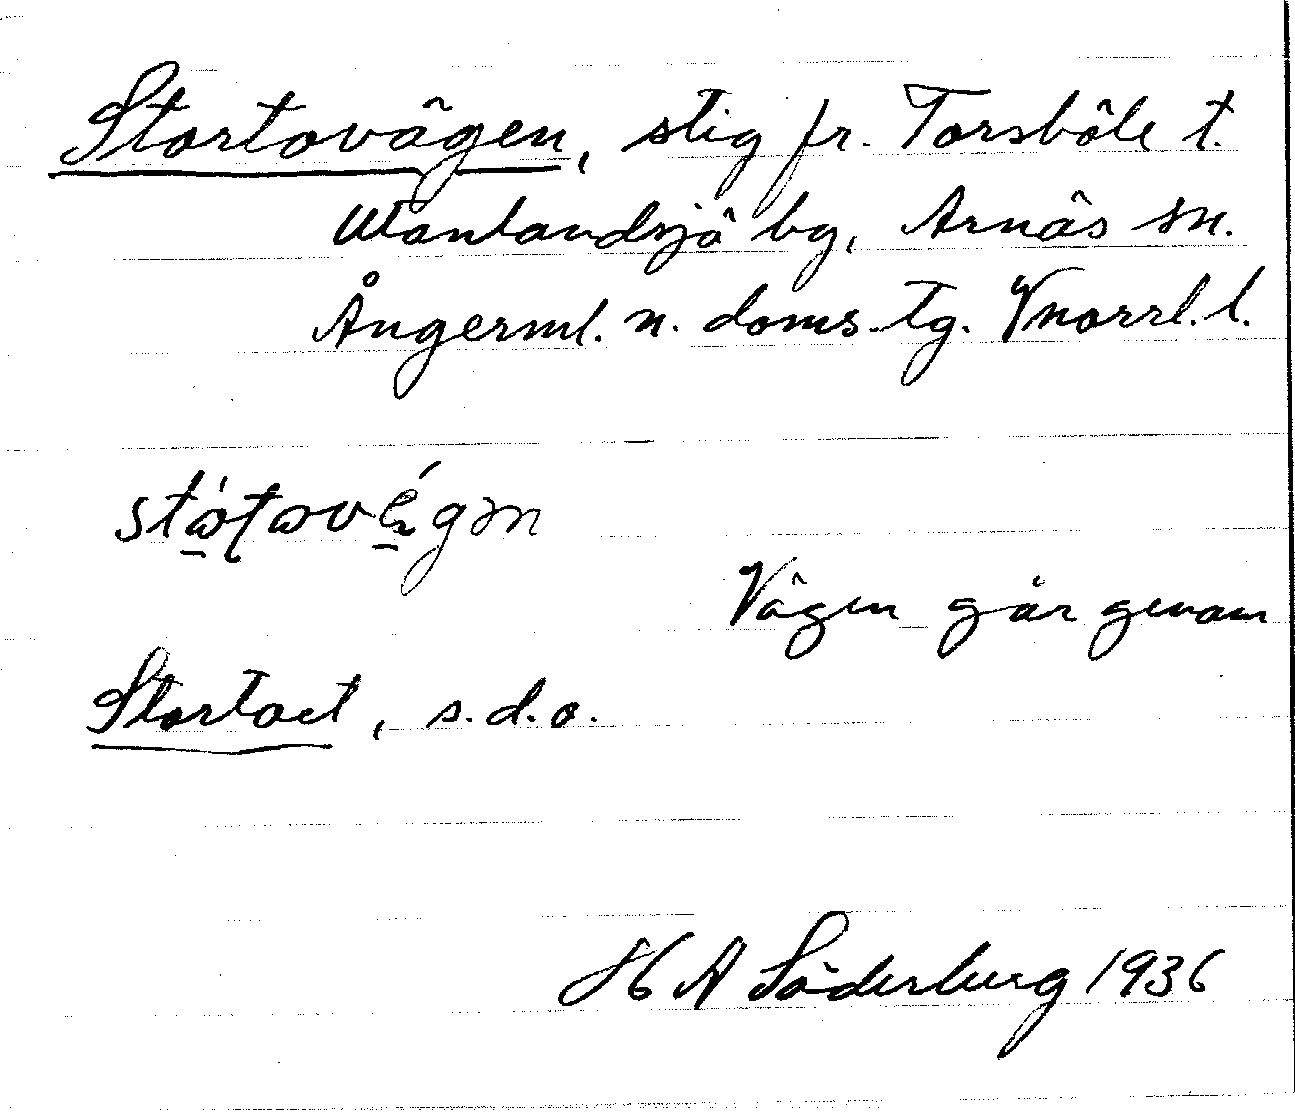 Stortovägen, stig fr. Torsböle t.
Utanlandsjö by, Arnäs sn.
Ångerml. n. doms. tg. Vnorrl. l.
Vägen går genom
Stortoet, s.d.o.
H A Söderberg 1936